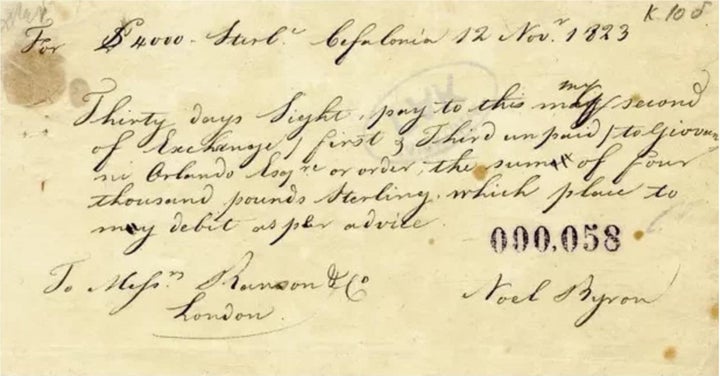 K. 108
For £ 4000 - Sterl.g Cefalonia 12 Nov.r 1823
my
Thirty days Sight, pay to this second
of Exchange / first & Third unpaid / to Giovan
ni Orlando Esq.re or order, the sum of four
thousand pounds Sterling. which place to
my debit as per advice.
000,058
To Mess.rs Ranson & Co Noel Byron
London.